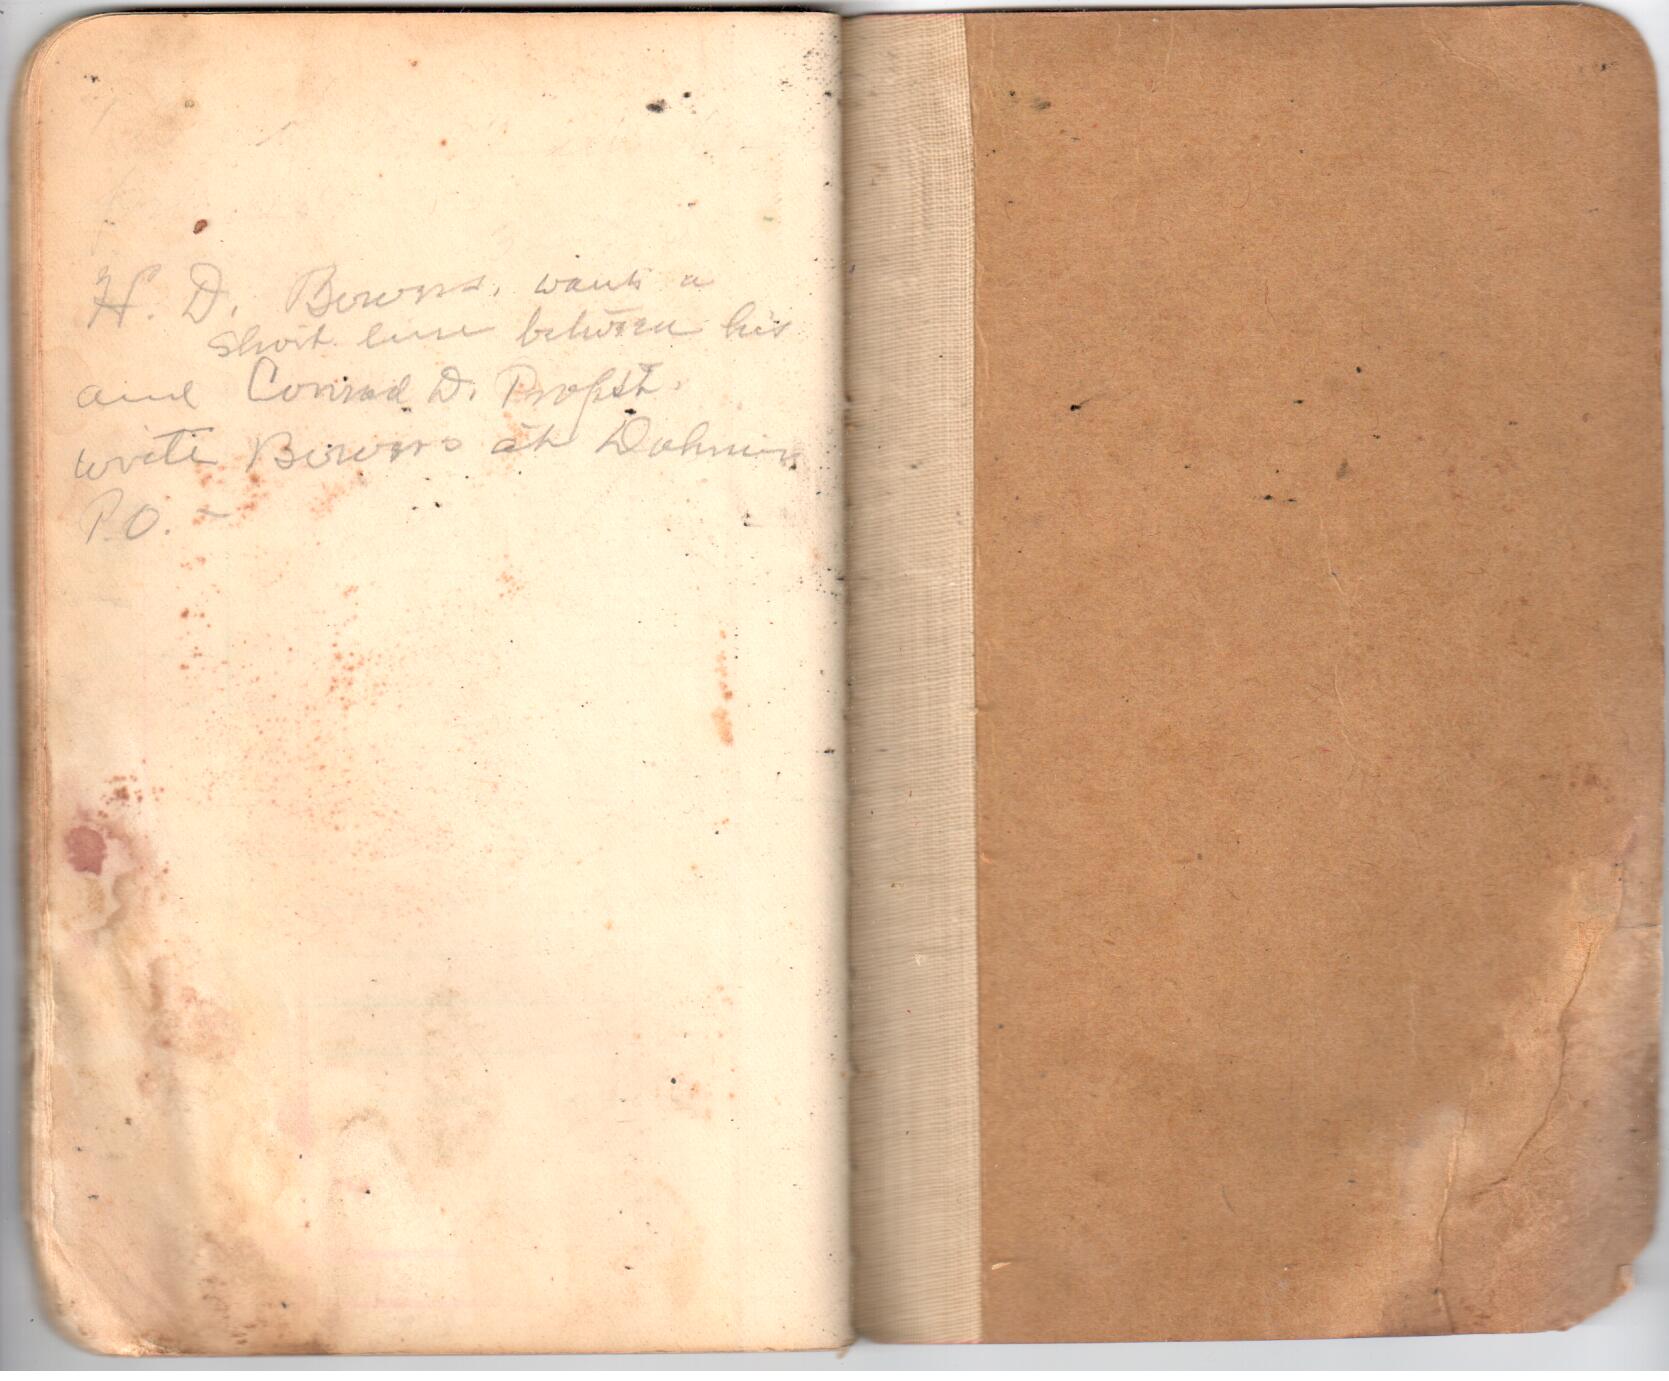 H. D. Bowers, wants a
short line between his
and Conrad D. Propst.
write Bowers at Dahmer
P.O. -